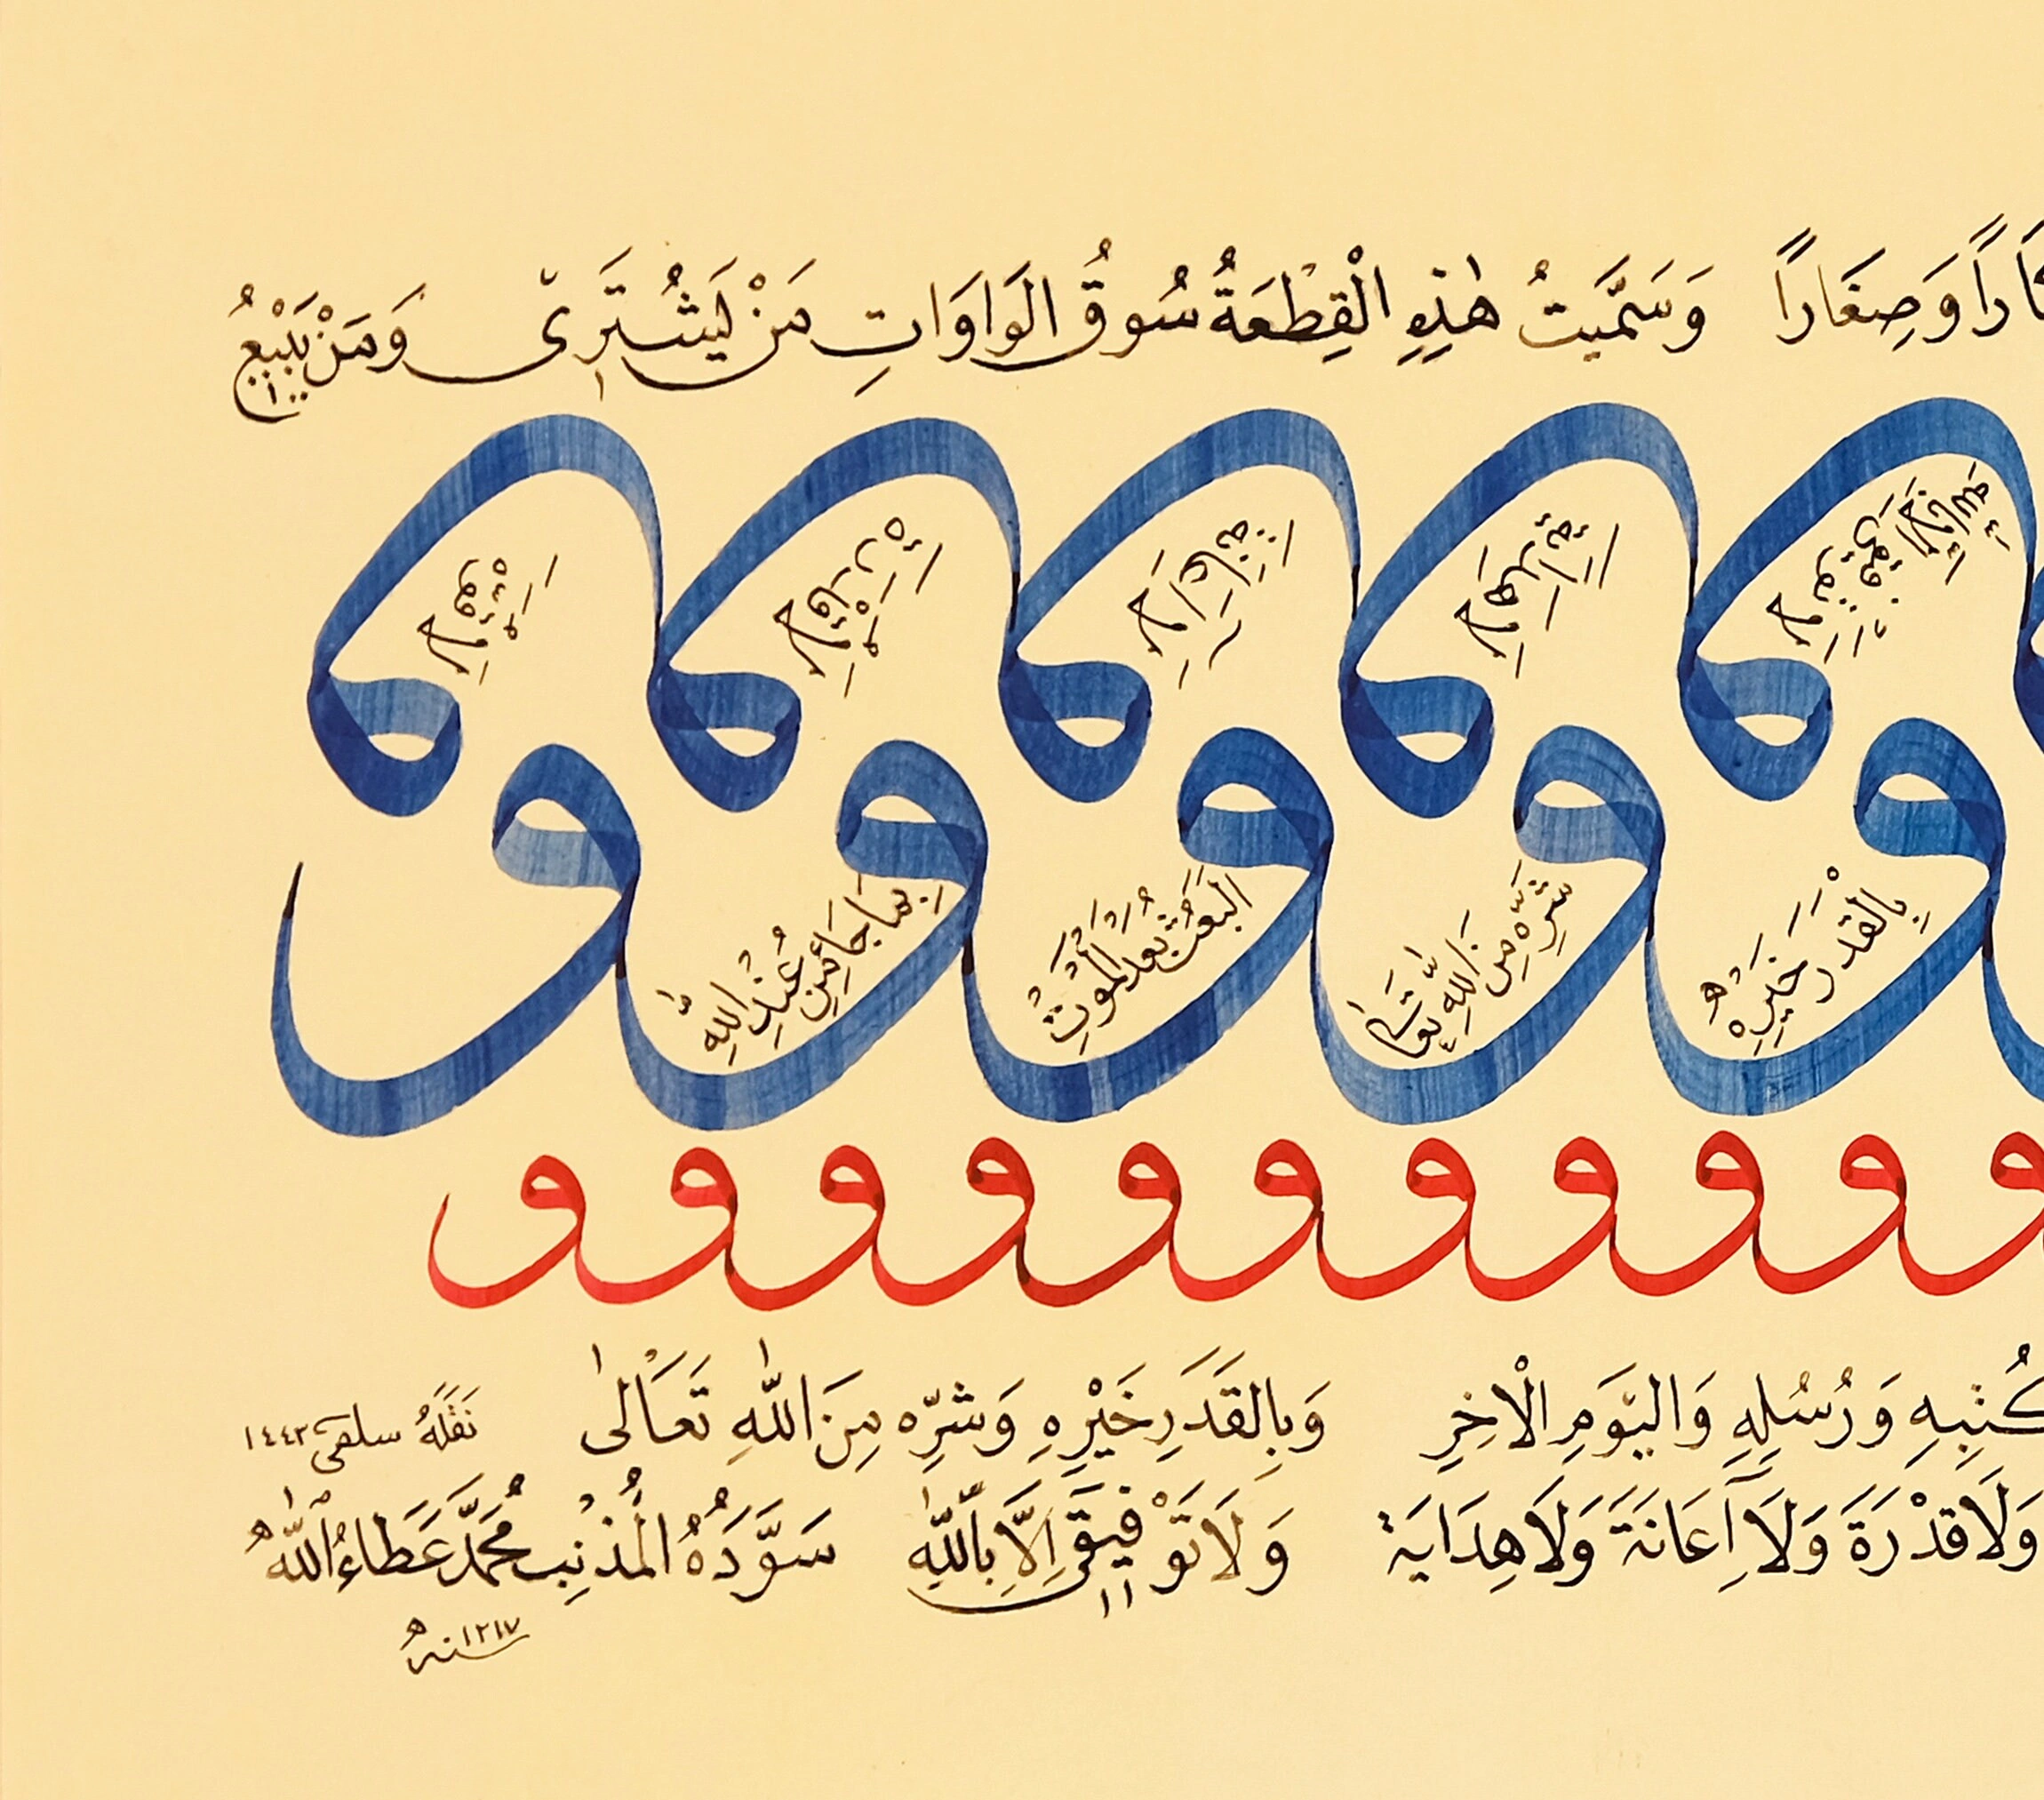 وَصِغَاراً وَسَمَّيتُ هٰذِهِ الْقِطْعَةُ سُوقُ الوَاوَاتِ مَنْ يَشْتَرَى وَمَنْ يَبْيعُ
و و و و و
و و و و و
بِالْقَدَرِ خَيْرِهِ
شَرِّهِ مِنَ اللهِ تَعَالَى
البَعْثُ بَعْدَ الْمَوْتِ
بِمَا جَاءَ مِنْ عِنْدِ اللهِ
و و و و و و و و و و و
كُتُبِهِ وَرُسُلِهِ وَاليَوَمِ الْاخِرِ وَبِالقَدَرِ خَيْرِهِ وَشَرِّه مِنَ اللهِ تَعَالٰى نَقَلَهُ سلمى ١٤٤٣
وَلَا قدْرَةَ وَلَا اِعَانَةَ وَلَا هِدَايَةَ وَلَا تَوْفِيقَ اِلَّا بِاللهِ سَوَّدَهُ المُذْنِب مُحَمَّدْ عَطَاءُ اللهْ
سنه ١٢١٧